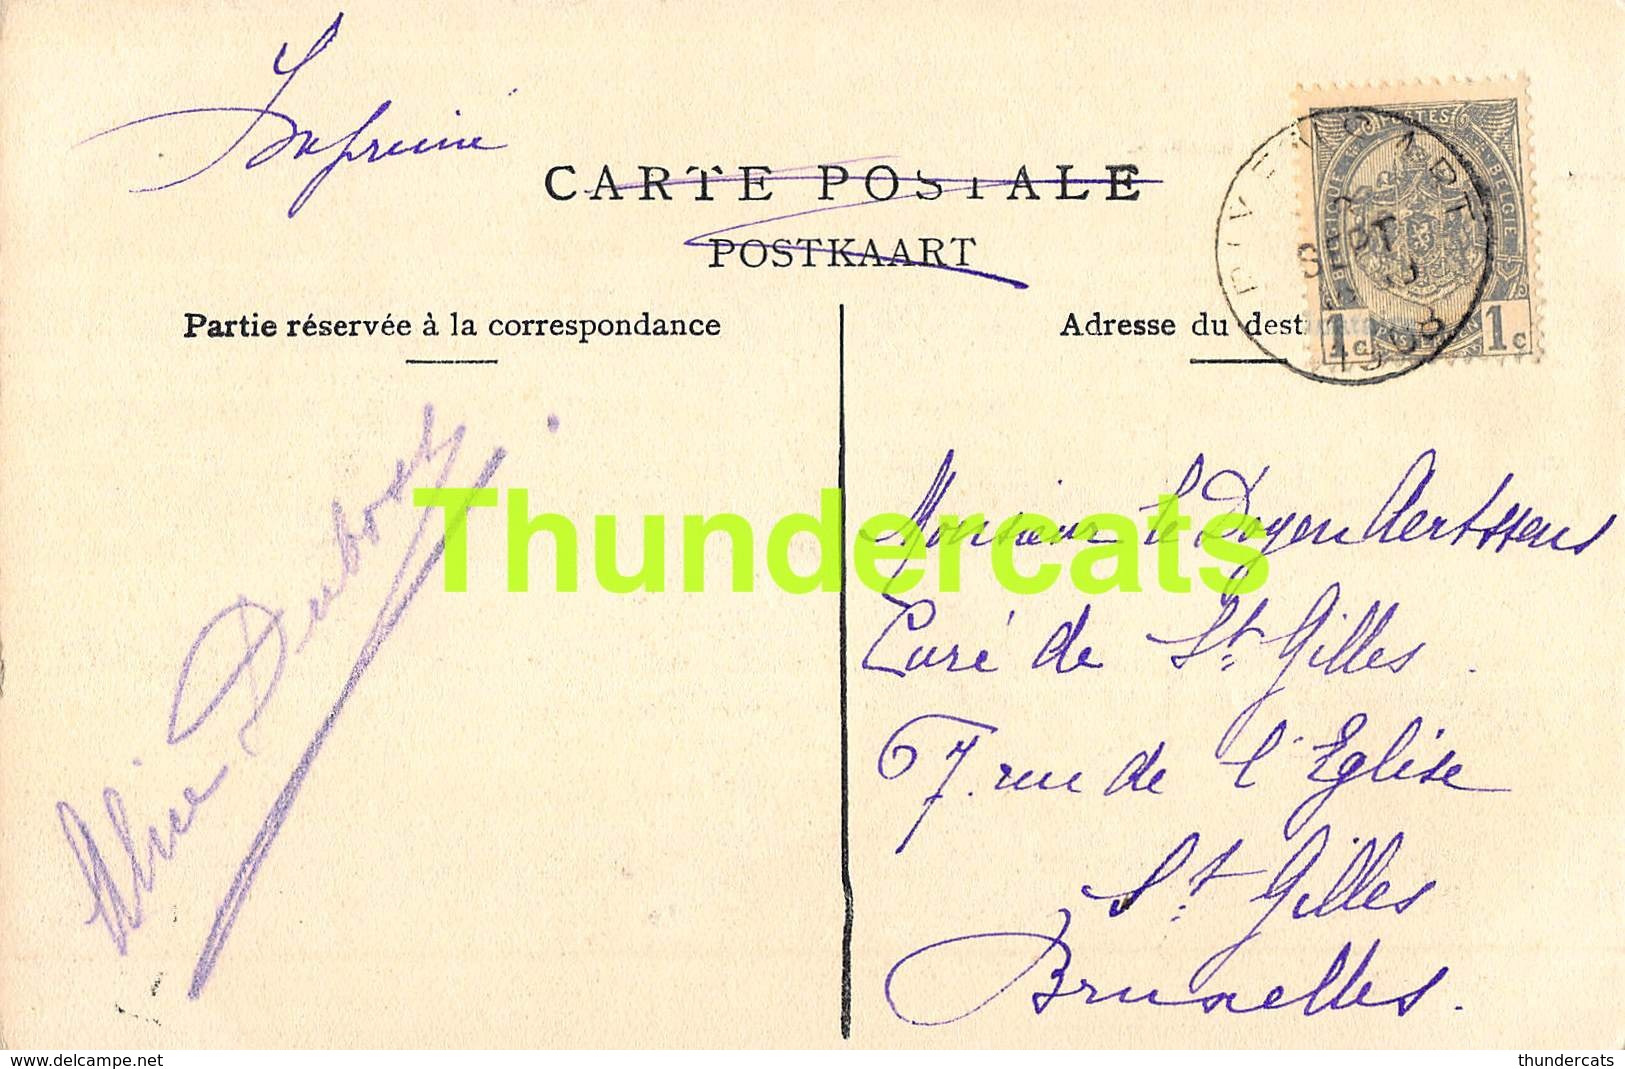 Imprimé
CARTE POSTALE
POSTKAART
Partie réservée à la correspondance
Adresse du desti
POSTES
1c 1c
SEPT
1908
Thundercats
Monsieur le Doyen Aertssens
Curé de St. Gilles
67. rue de l'Eglise
St. Gilles
Bruxelles.
delcampe.net
thundercats